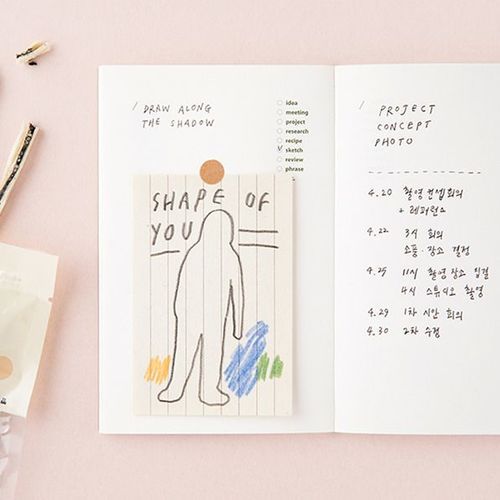 / DRAW ALONG
THE SHADOW
idea
meeting
project
research
recipe
sketch
review
phrase
SHAPE OF
YOU
/ PROJECT
CONCEPT
PHOTO
4.20 촬영 컨셉회의
+ 레퍼런스
4.22 3시 회의
소품·장소 결정
4.25 11시 촬영장소 집결
4시 스튜디오 촬영
4.29 1차 시안 회의
4.30 2차 수정